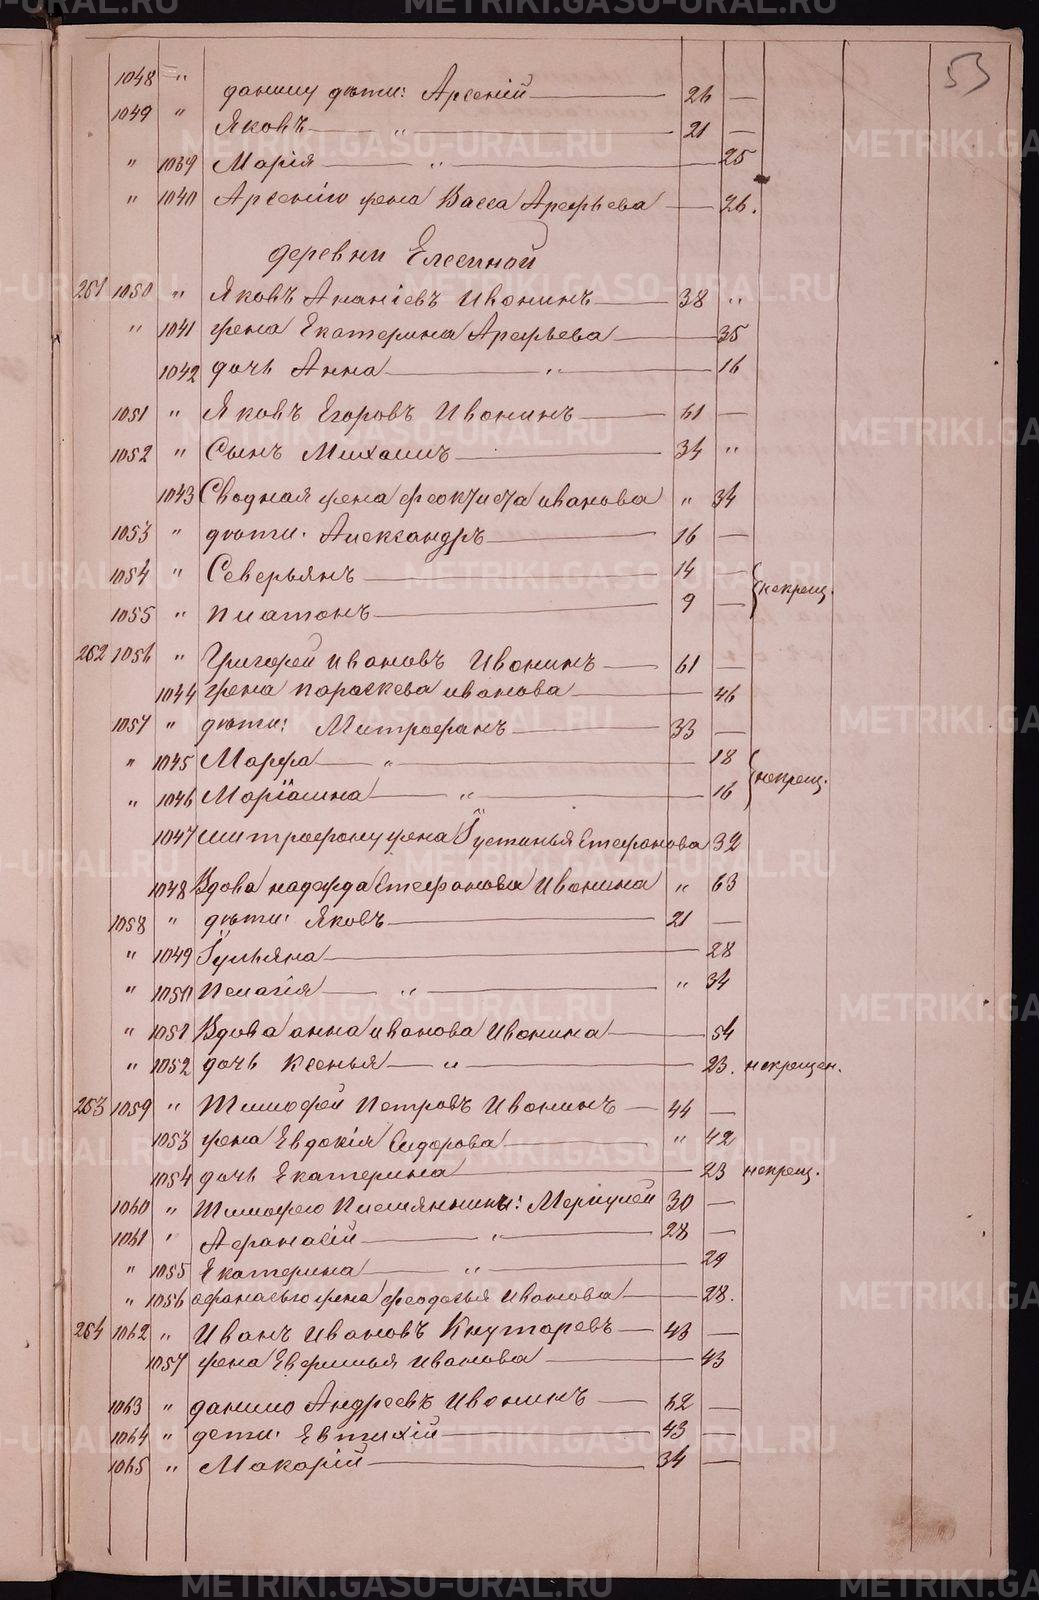 53
1048 " данилу дѣти: Арсеній — 26 —
1049 " Яковъ — " — 21 —
" 1039 Марія — " — 25
" 1040 Арсенію жена Васса Арефьева — 26.
деревни Елесиной
261 1050 " Яковъ Ананіевъ Ивонинъ — 38 "
" 1041 жена Екатерина Арефьева — 35
1042 дочь Анна — " — 16
1051 " Яковъ Егоровъ Ивонинъ — 61 —
1052 " Сынъ Михаилъ — 34 "
1043 Сводная жена феоктиста иванова " 34
1053 " дѣти: Александръ — 16 —
1054 " Северьянъ — 14 —
некрещ.
1055 " Платонъ — 9 —
262 1056 " Григорей ивановъ Ивонинъ — 61 —
1044 жена параскева иванова — 46
1057 " дѣти: Митрофанъ — 33 —
" 1045 Марфа — " — 18
некрещ.
" 1046 Маріамна — " — 16
1047 митрофану жена Іустинья Стефанова 32
1048 Вдова надежда Стефанова Ивонина " 63
1058 " дѣти: Яковъ — 21 —
" 1049 Іульяна — 28
" 1050 Пелагія — " — " 34
" 1051 Вдова анна иванова Ивонина — 54
" 1052 дочь Ксенья — " — 23. некрещен.
263 1059 " Тимофей Петровъ Ивонинъ — 44 —
1053 жена Евдокія Сидорова — " 42
1054 дочь Екатерина — 23 некрещ.
1060 " Тимофею Племянники: Меркулей 30 —
1061 " Афанасій — " — 28 —
" 1055 Екатерина — " — 29
" 1056 афанасью жена феодосья Иванова — 28.
264 1062 " Иванъ Ивановъ Кнутаревъ — 43 —
1057 жена Евфимья Иванова — 43
1063 " данило Андреевъ Ивонинъ — 62 —
1064 " дети: Евтихій — 43 —
1065 " Макарій — 34 —
METRIKI.GASO-URAL.RU